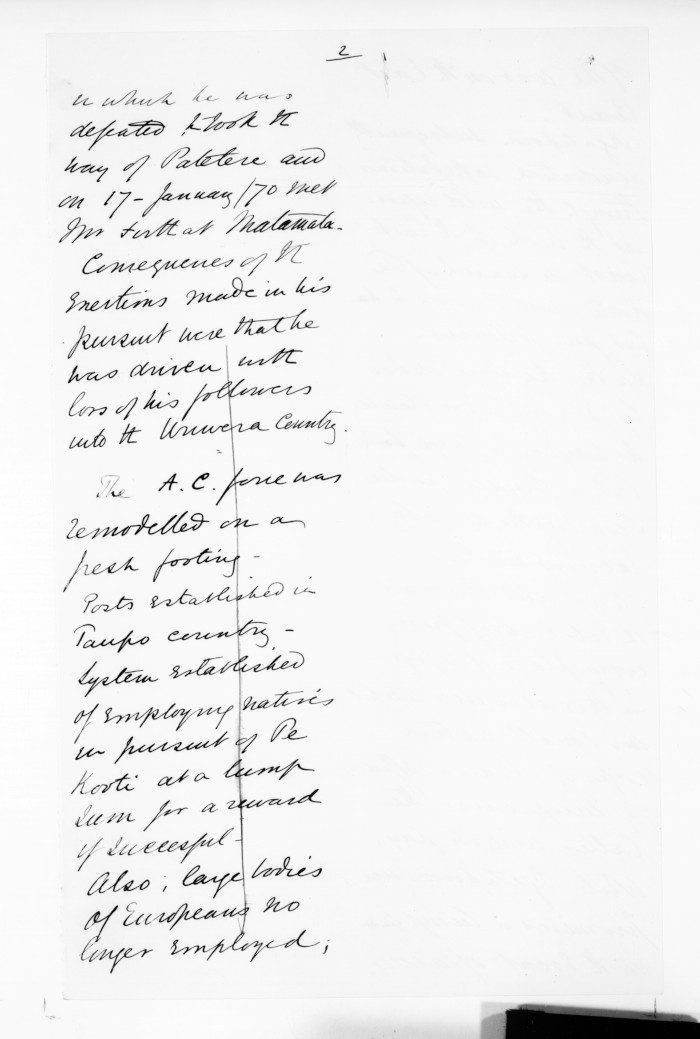 2
in which he was
defeated & took the
way of Patetere and
on 17 - January /70 met
Mr Firth at Matamata -
Consequences of the
Exertions made in his
pursuit were that he
was driven with
loss of his followers
into the Urewera Country.
The A. C. force was
remodelled on a
fresh footing -
Posts established in
Taupo country -
System established
of employing natives
in pursuit of Te
Kooti at a lump
sum for a reward
if successful -
Also; large bodies
of Europeans no
longer employed;